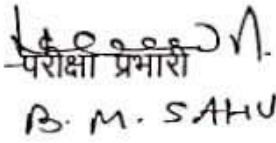 परीक्षा प्रभारी
B. M. SAHU